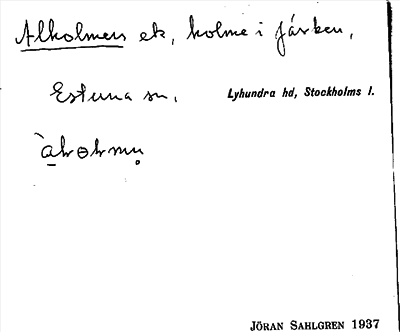 Alholmen ek, holme i Järken,
Estuna sn. Lyhundra hd, Stockholms l.
JÖRAN SAHLGREN 1937